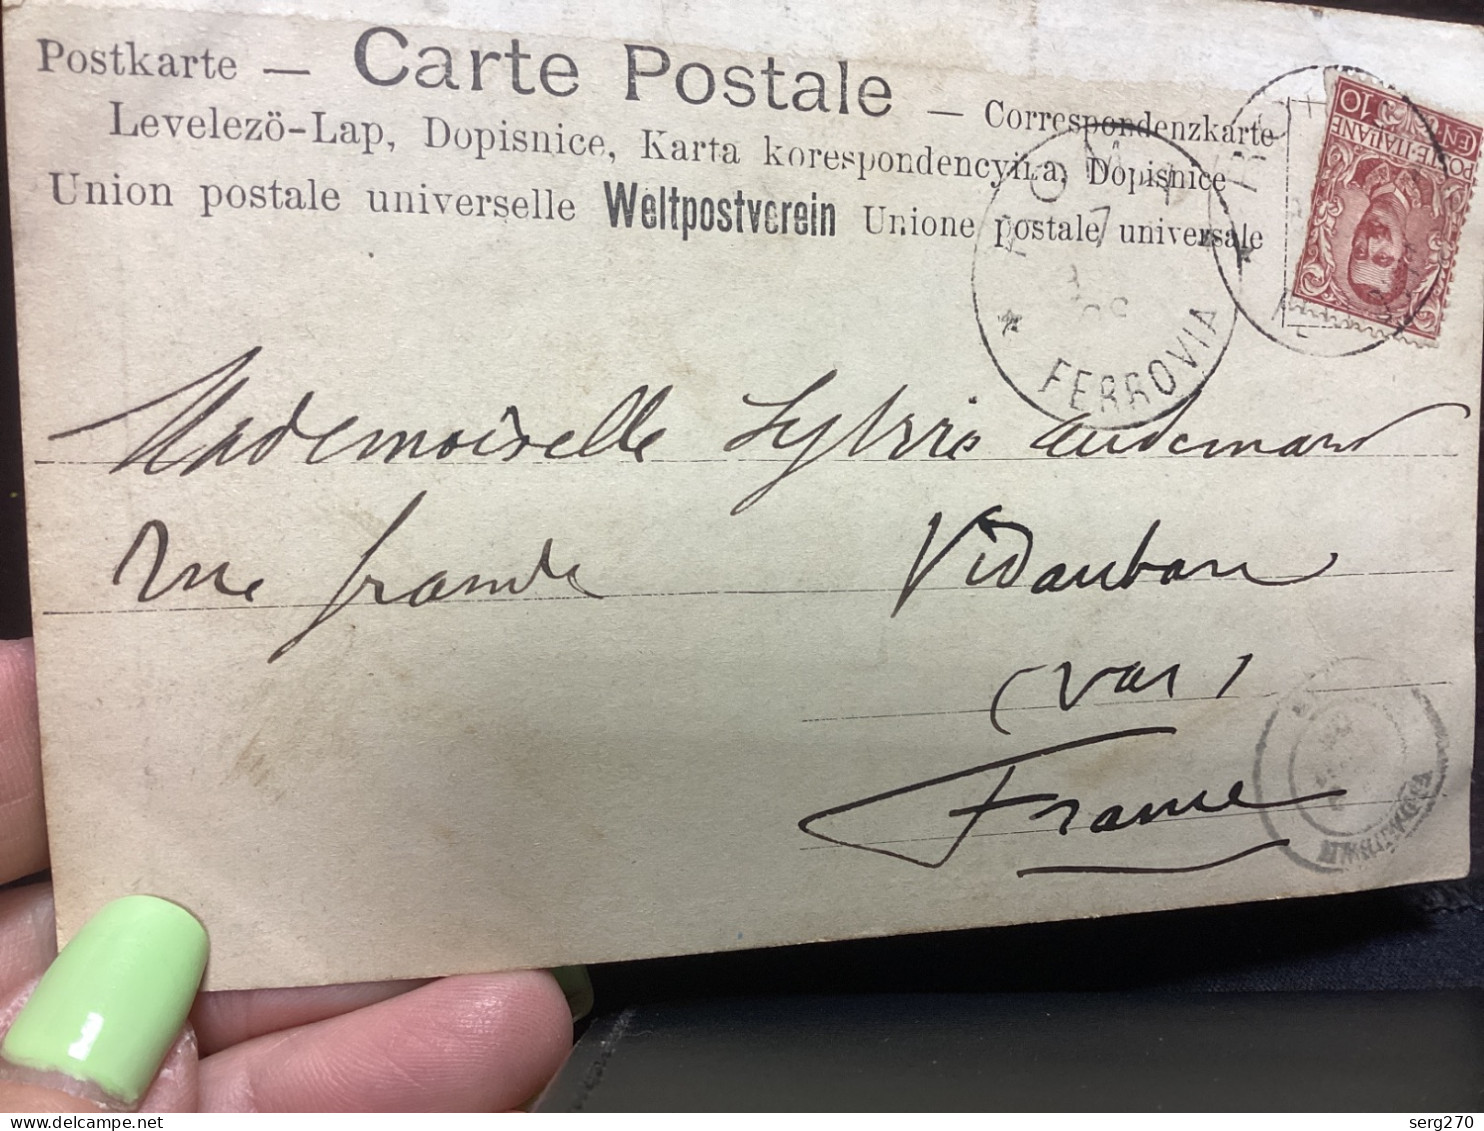 Postkarte — Carte Postale — Correspondenzkarte
Levelezö-Lap, Dopisnice, Karta korespondencyina, Dopisnice
Union postale universelle Weltpostverein Unione postale universale
POSTE·ITALIANE
10
ROMA
7
FERROVIA
Mademoiselle Sylvie Audemard
Rue grande Vidauban
(Var)
France
serg270